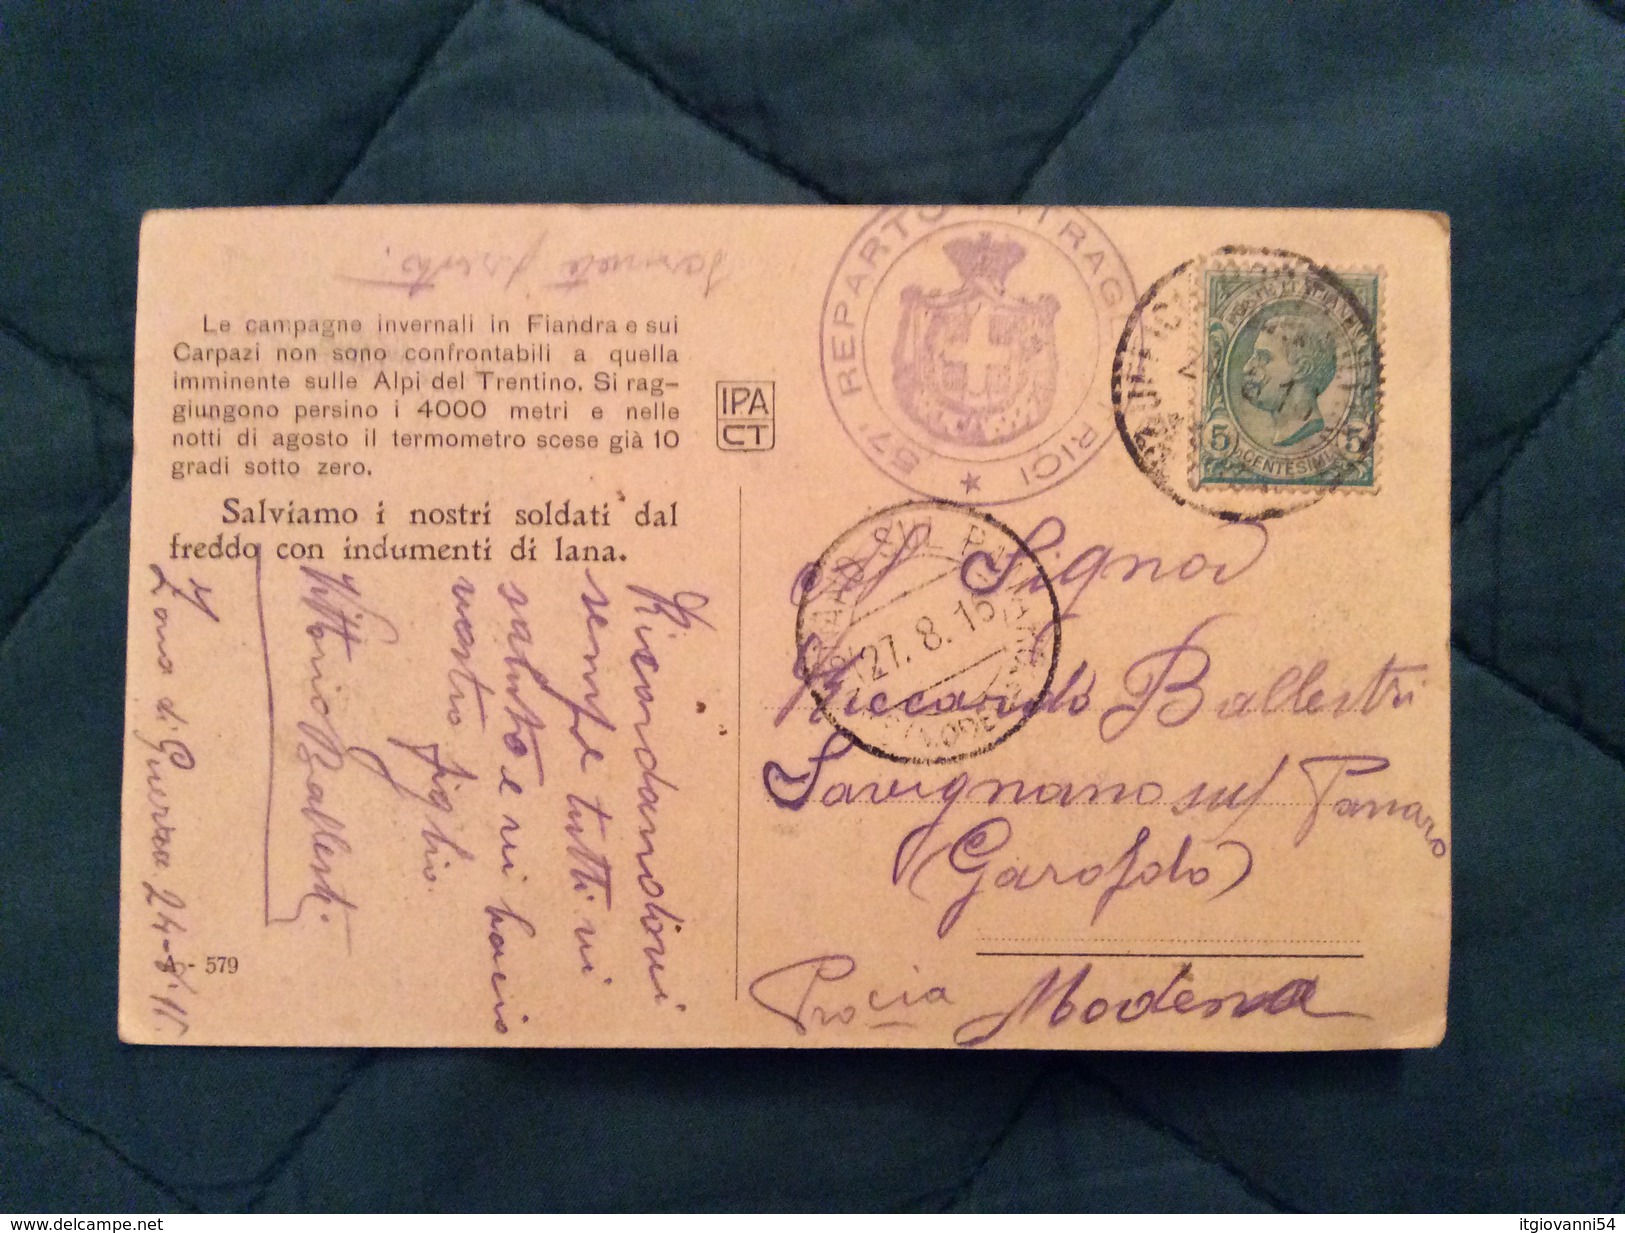 Le campagne invernali in Fiandra e sui
Carpazi non sono confrontabili a quella
imminente sulle Alpi del Trentino. Si rag-
giungono persino i 4000 metri e nelle
notti di agosto il termometro scese già 10
gradi sotto zero.
Salviamo i nostri soldati dal
freddo con indumenti di lana.
IPA
CT
Ricordandovi
sempre tutti vi
saluto e vi bacio
vostro figlio.
Vittorio Ballestri.
Zona di Guerra 24-8-15.
A - 579
57° REPARTO RICI
POSTE ITALIANE
5 5
CENTESIMI
SUL PANARO
27. 8. 15
(MODENA)
Signor
Riccardo Ballestri
Savignano sul Panaro
(Garofolo)
Procia Modena
www.delcampe.net
itgiovanni54